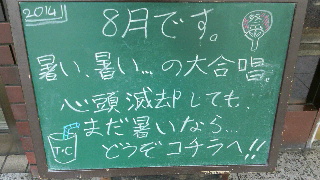 2014
8月です。
暑い、暑い...の大合唱。
心頭滅却しても、
まだ暑いなら...
どうぞコチラへ!!
T・C